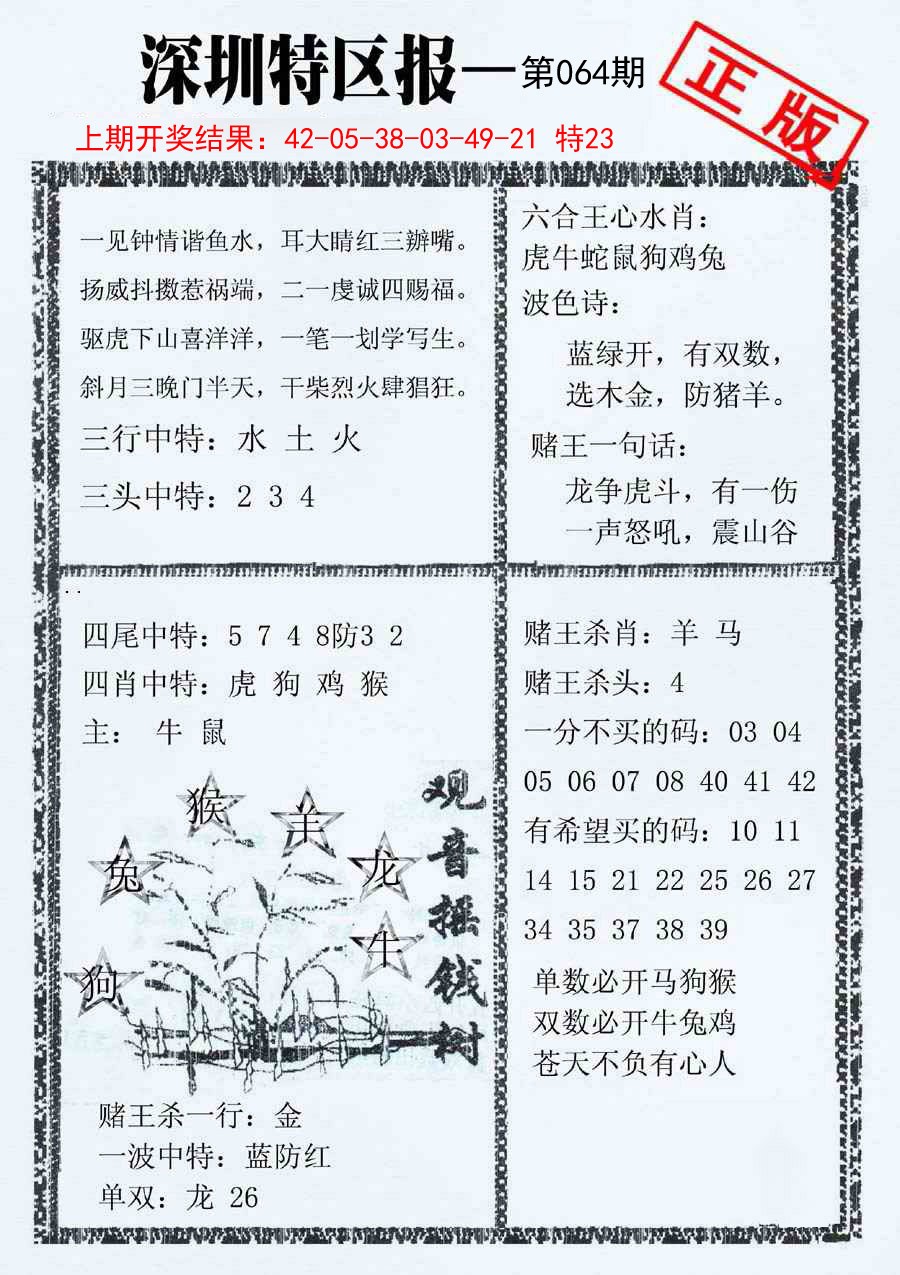 深圳特区报—第064期
正版
上期开奖结果：42-05-38-03-49-21 特23
一见钟情谐鱼水，耳大晴红三辦嘴。
扬威抖擞惹祸端，二一虔诚四赐福。
驱虎下山喜洋洋，一笔一划学写生。
斜月三晚门半天，干柴烈火肆猖狂。
三行中特：水 土 火
三头中特：2 3 4
六合王心水肖：
虎牛蛇鼠狗鸡兔
波色诗：
蓝绿开，有双数，
选木金，防猪羊。
赌王一句话：
龙争虎斗，有一伤
一声怒吼，震山谷
四尾中特：5 7 4 8防3 2
四肖中特：虎 狗 鸡 猴
主： 牛 鼠
猴
羊
兔
龙
牛
狗
观音摇钱树
赌王杀一行：金
一波中特：蓝防红
单双：龙 26
赌王杀肖：羊 马
赌王杀头：4
一分不买的码：03 04
05 06 07 08 40 41 42
有希望买的码：10 11
14 15 21 22 25 26 27
34 35 37 38 39
单数必开马狗猴
双数必开牛兔鸡
苍天不负有心人